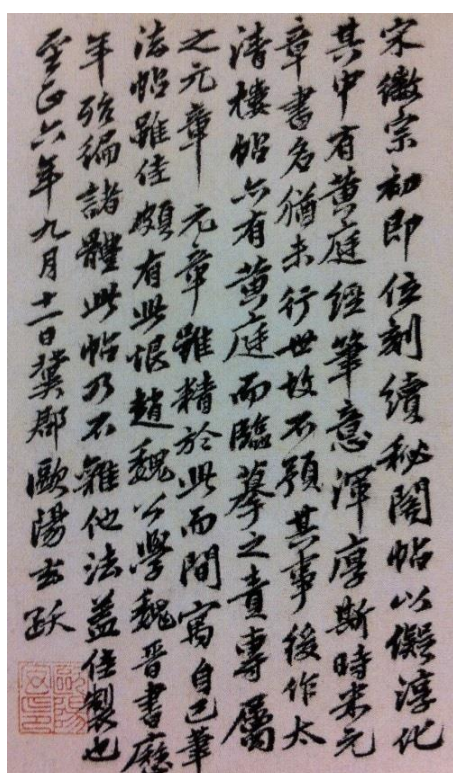 宋徽宗初即位刻續秘閣帖以擬淳化
其中有黄庭經筆意渾厚斯時米元
章書名猶未行世故不預其事後作太
清樓帖亦有黄庭而臨摹之責專屬
之元章元章雖精於此而間寫自己筆
法帖雖佳頗有此恨趙魏公學魏晋書歷
年殆徧諸體此帖乃不雜他法蓋佳製也
至正六年九月十一日冀郡歐陽玄跋
歐陽
玄印